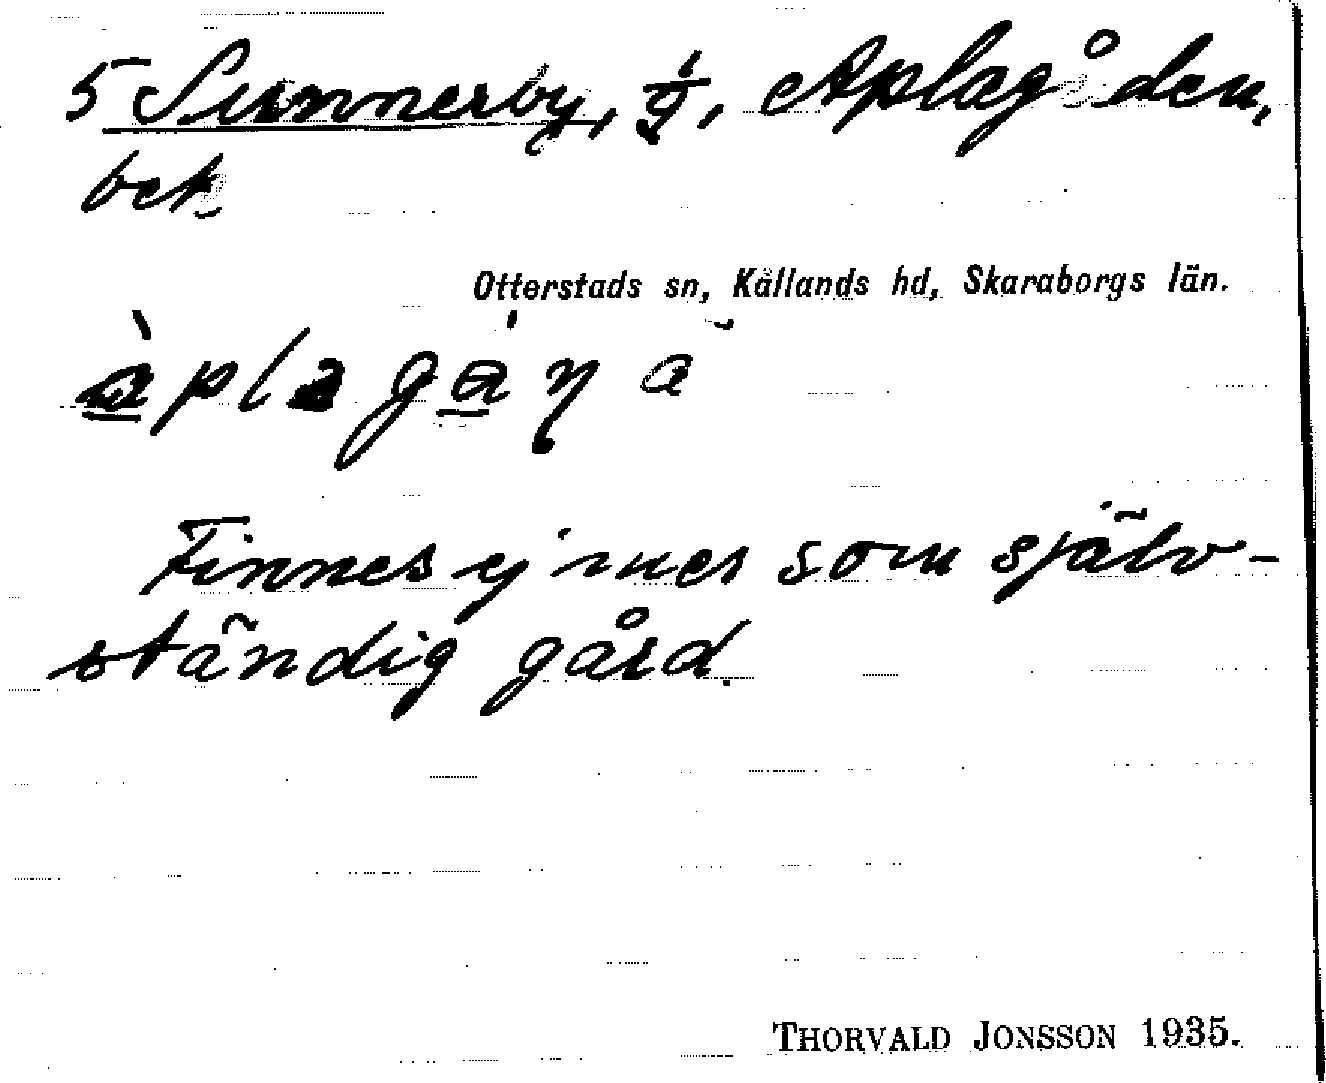 5 Sunnerby, 1/4, Aplagården,
bek.
Otterstads sn, Kållands hd, Skaraborgs län.
Finnes ej mer som själv-
ständig gård.
THORVALD JONSSON 1935.